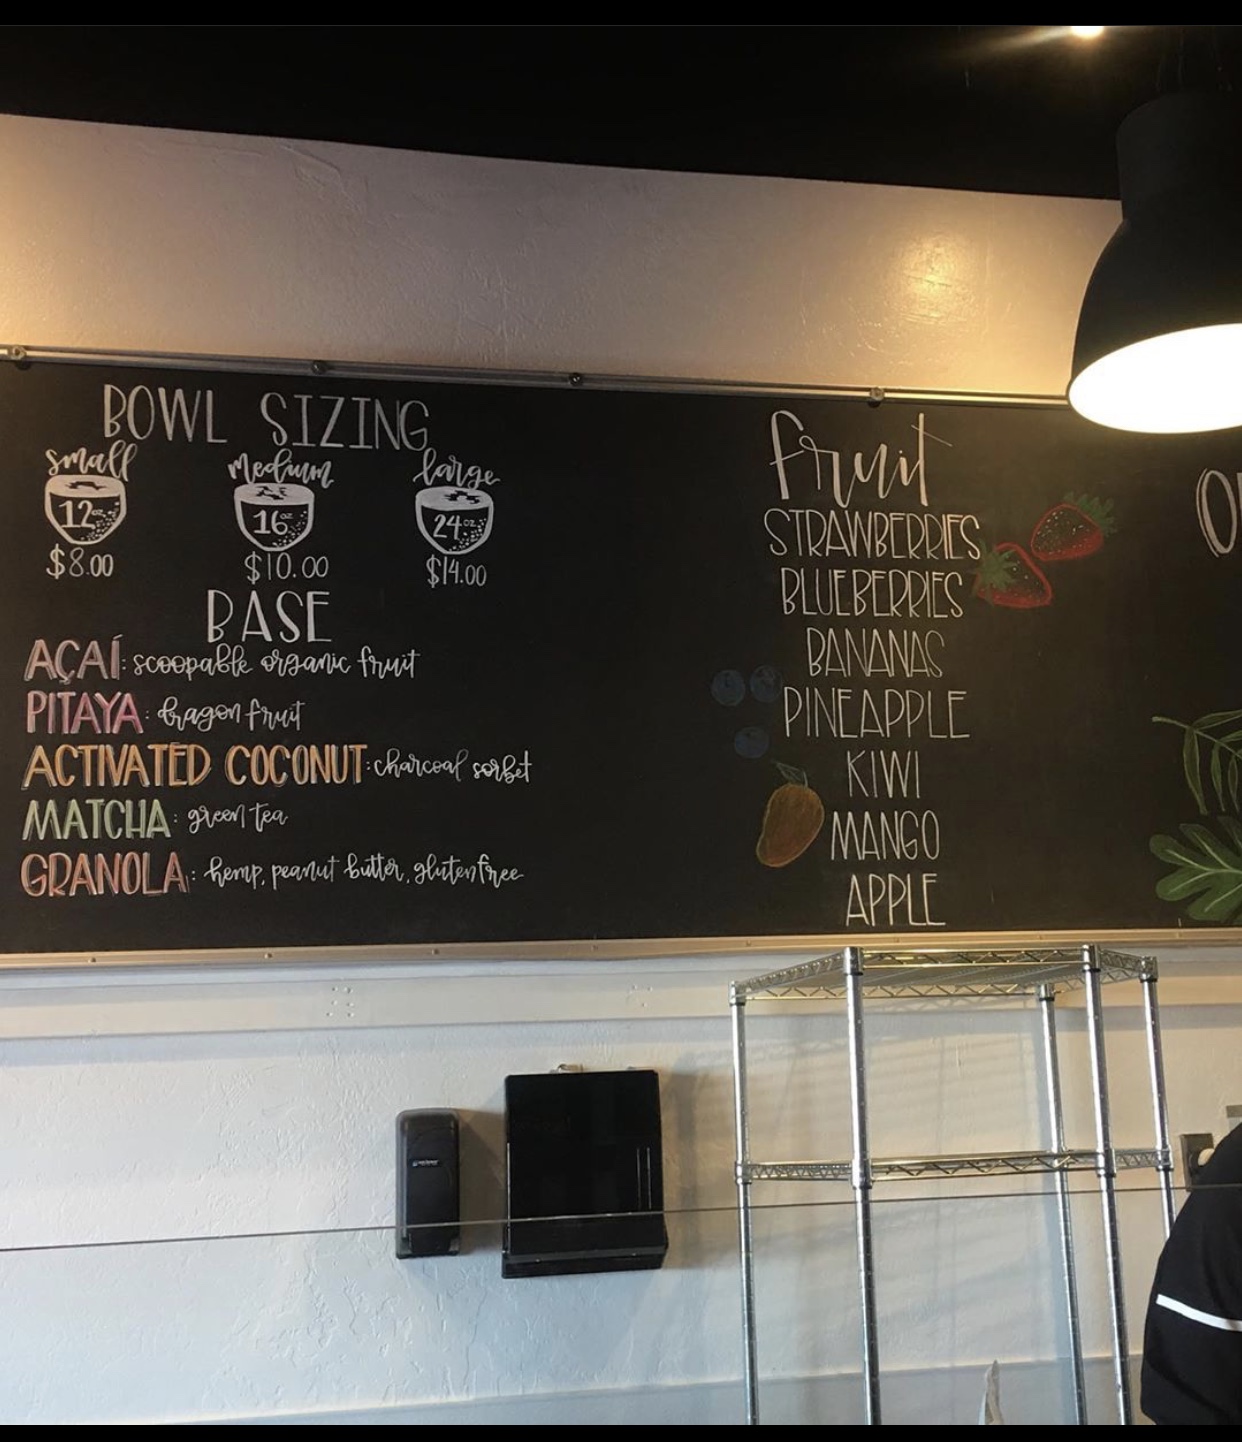 BOWL SIZING
small medium large
12oz 16oz 24oz
$8.00 $10.00 $14.00
BASE
AÇAÍ: scoopable organic fruit
PITAYA: dragon fruit
ACTIVATED COCONUT: charcoal sorbet
MATCHA: green tea
GRANOLA: hemp, peanut butter, gluten free
fruit
STRAWBERRIES
BLUEBERRIES
BANANAS
PINEAPPLE
KIWI
MANGO
APPLE